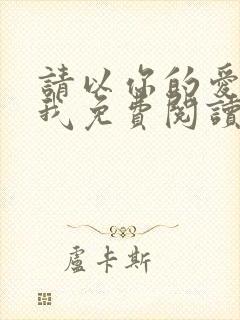 請以你的愛
我免費閱讀
盧卡斯